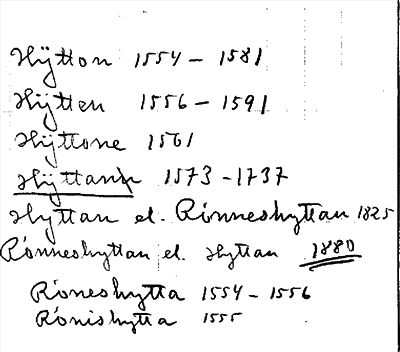 Hÿtton 1554 - 1581
Hÿtten 1556 - 1591
Hÿttone 1561
Hÿttann 1573 - 1737
Hyttan el. Rönneshyttan 1825
Rönneshyttan el. Hyttan 1880
Röneshytta 1554 - 1556
Rönishytta 1555